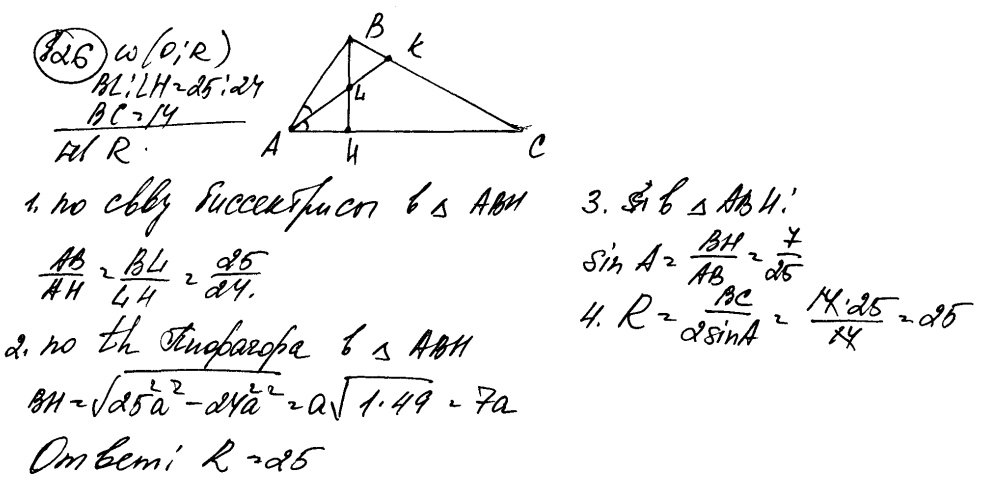 26 ω(O; R)
BL:LH=25:24
BC=14
R.
B K
L
A H C
1. по свву биссектрисы в △ ABH
AB/AH = BL/LH = 25/24.
2. по th Пифагора в △ ABH
BH=√(25²a²-24²a²)=a√(1·49) = 7a
Ответ: R=25
3. в △ ABH:
sin A = BH/AB = 7/25
4. R = BC/2sinA = 14·25/14 = 25